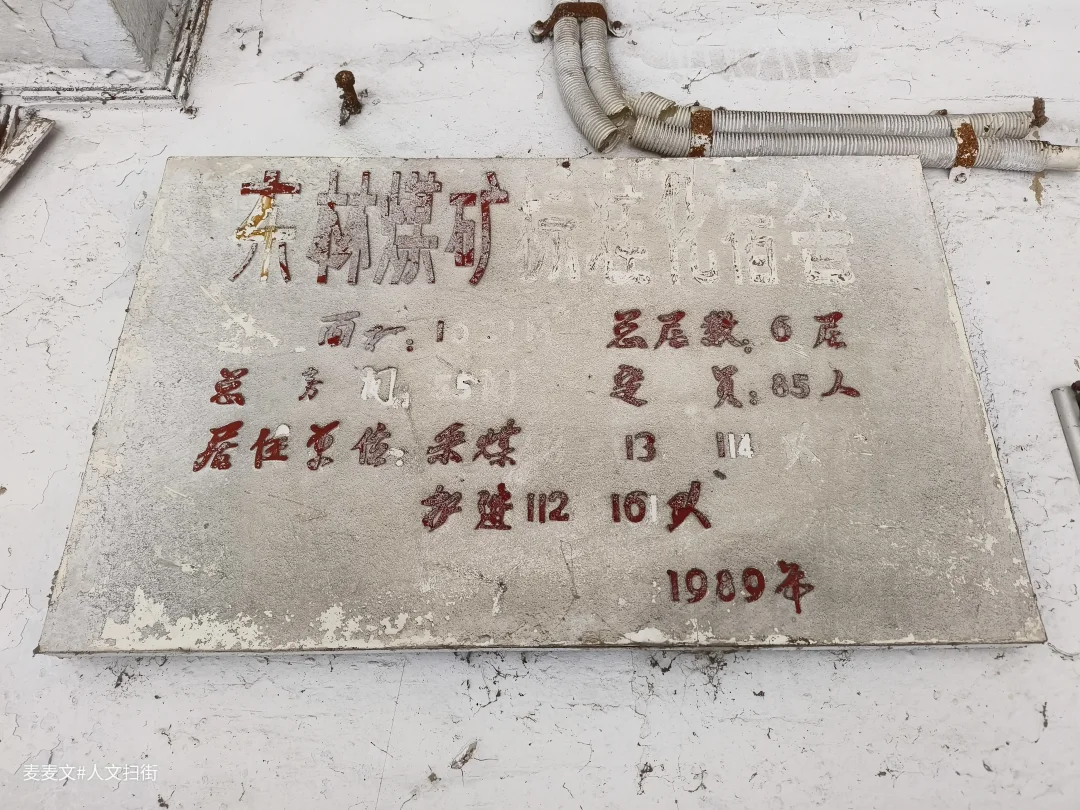 东林煤矿标准化宿舍
面积:1 总层数:6层
总房间:55间 定员:85人
居住单位:采煤 13 114 队
掘进112 161队
1989年
麦麦文#人文扫街